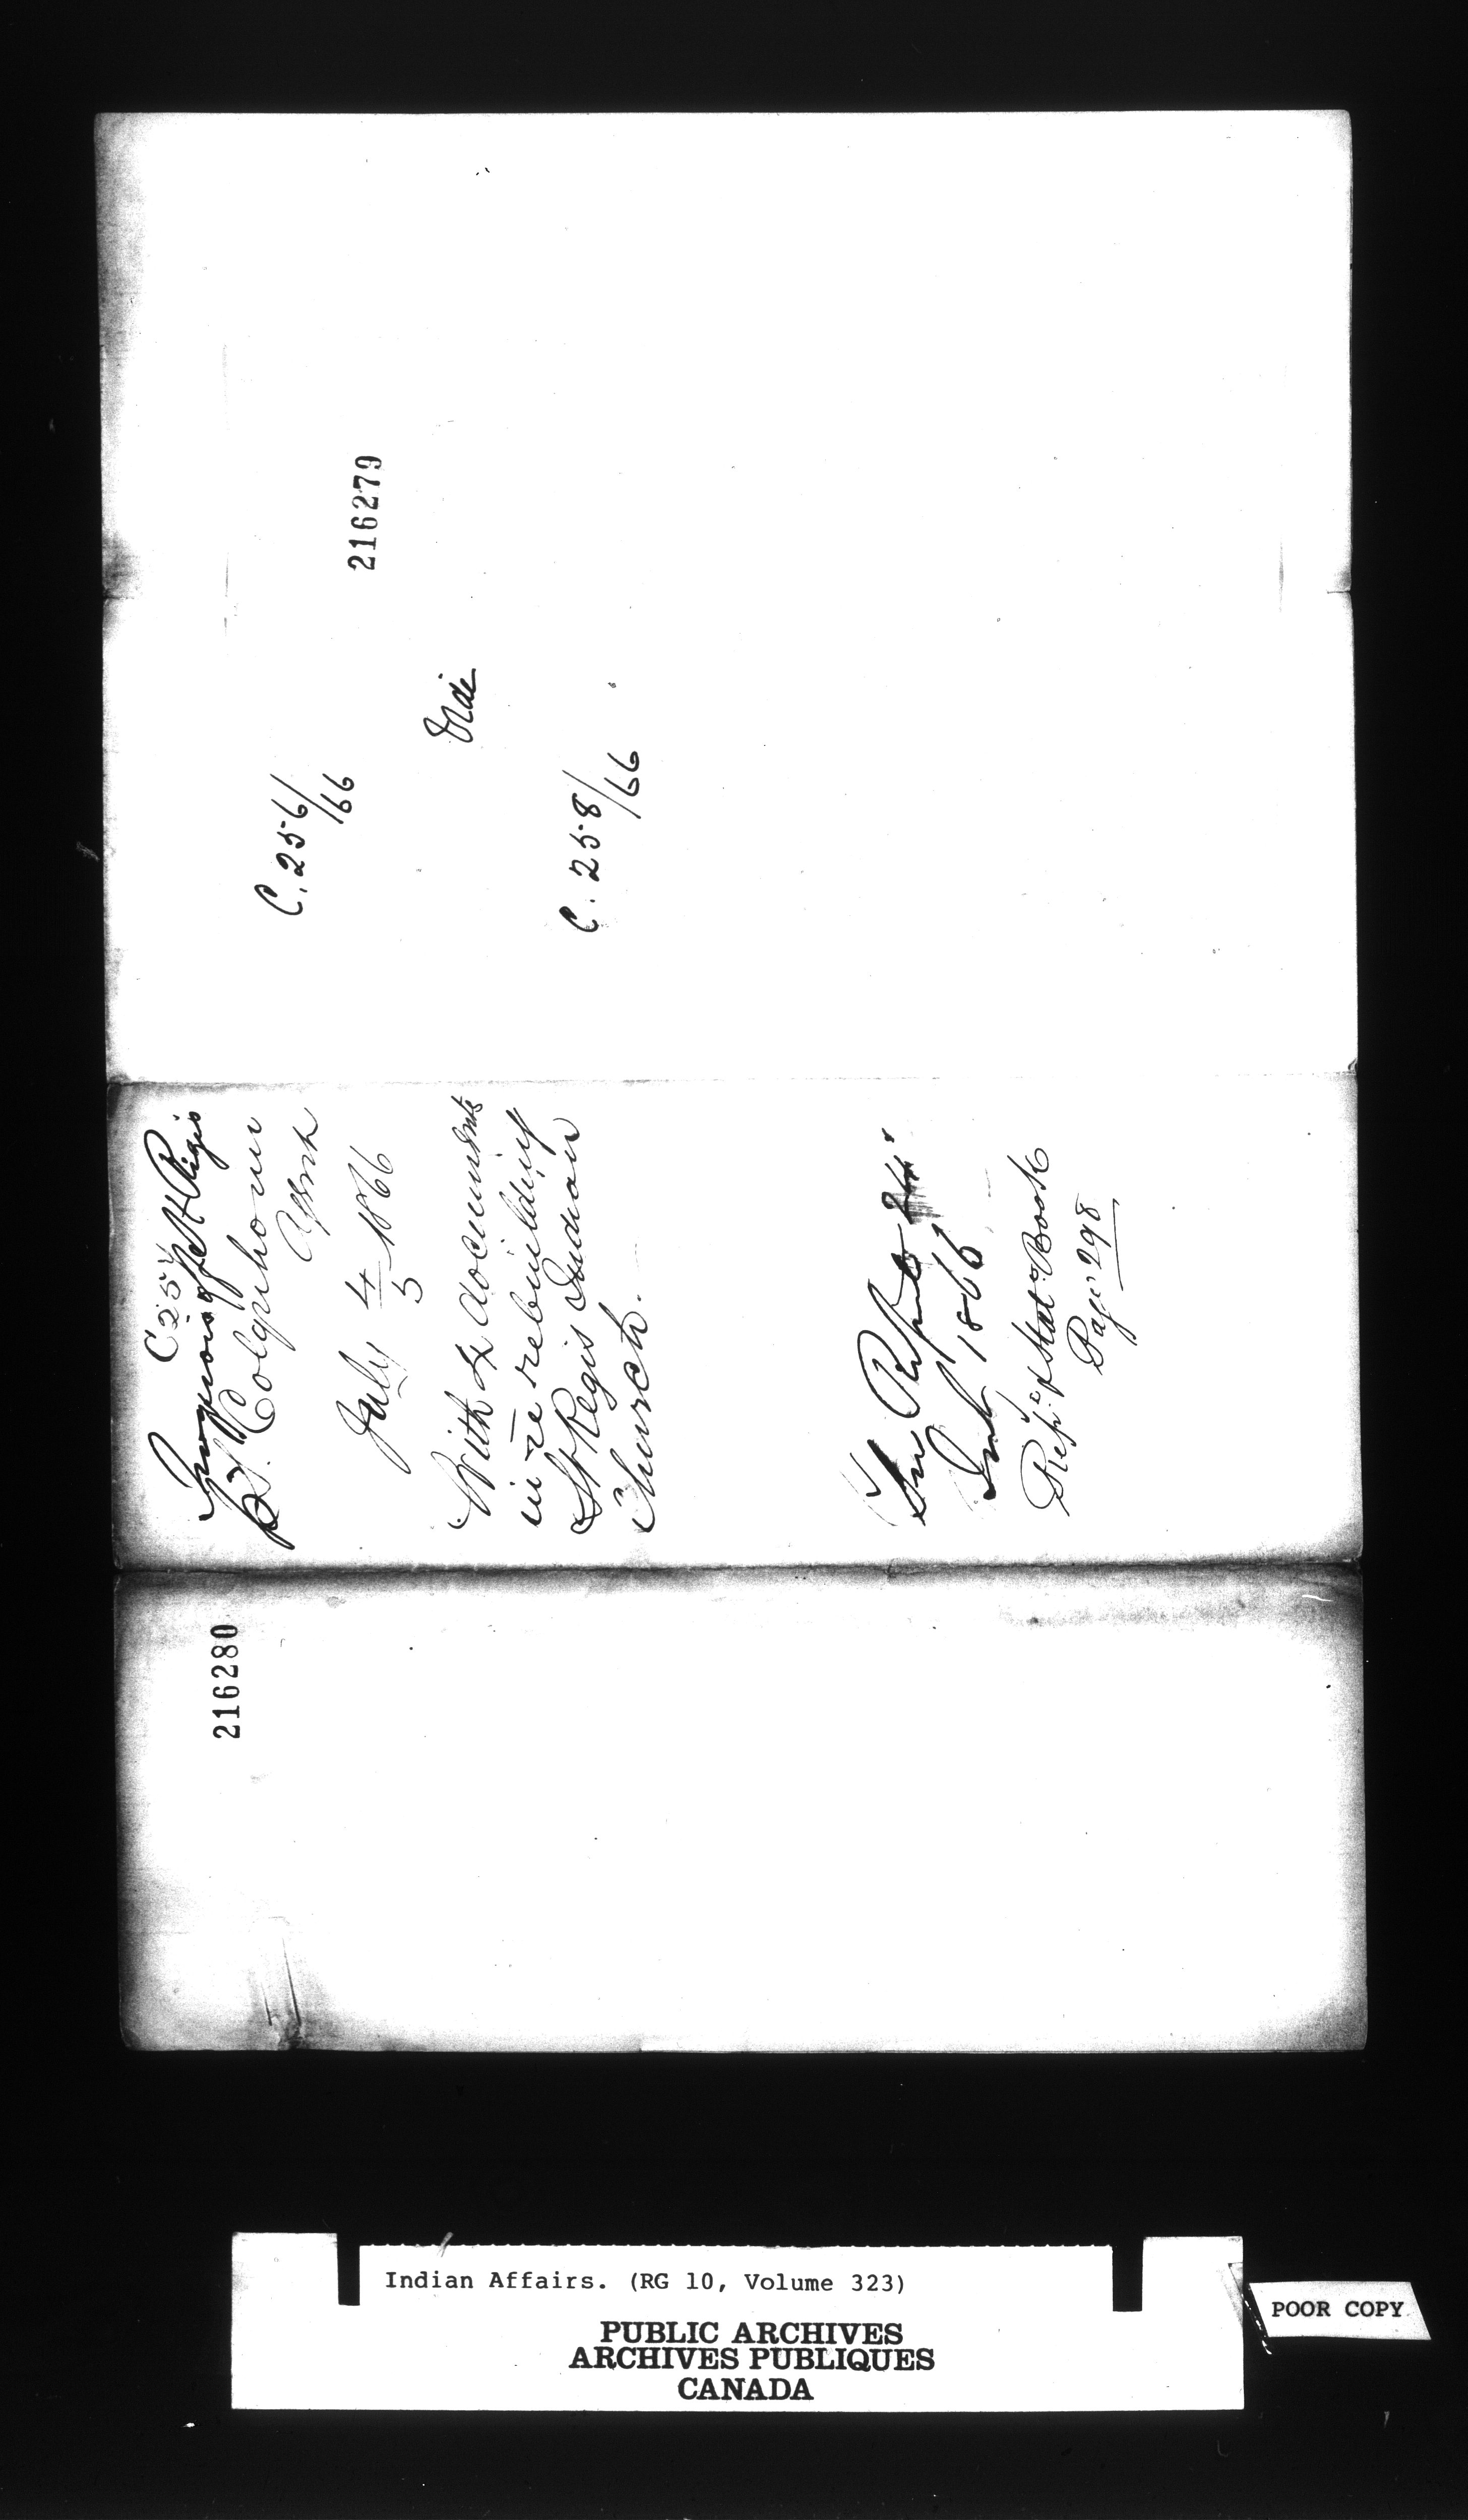 216279
C. 256/66
Vide
C. 258/66
C 257
Iroquois of St Regis
Colquhoun
Agent
July 4/5 1866
With 2 documents
in re rebuilding
St Regis Indian
Church.
See Report
July 1866
Rept of Stat. Book
Page 298
216280
Indian Affairs. (RG 10, Volume 323)
PUBLIC ARCHIVES
ARCHIVES PUBLIQUES
CANADA
POOR COPY